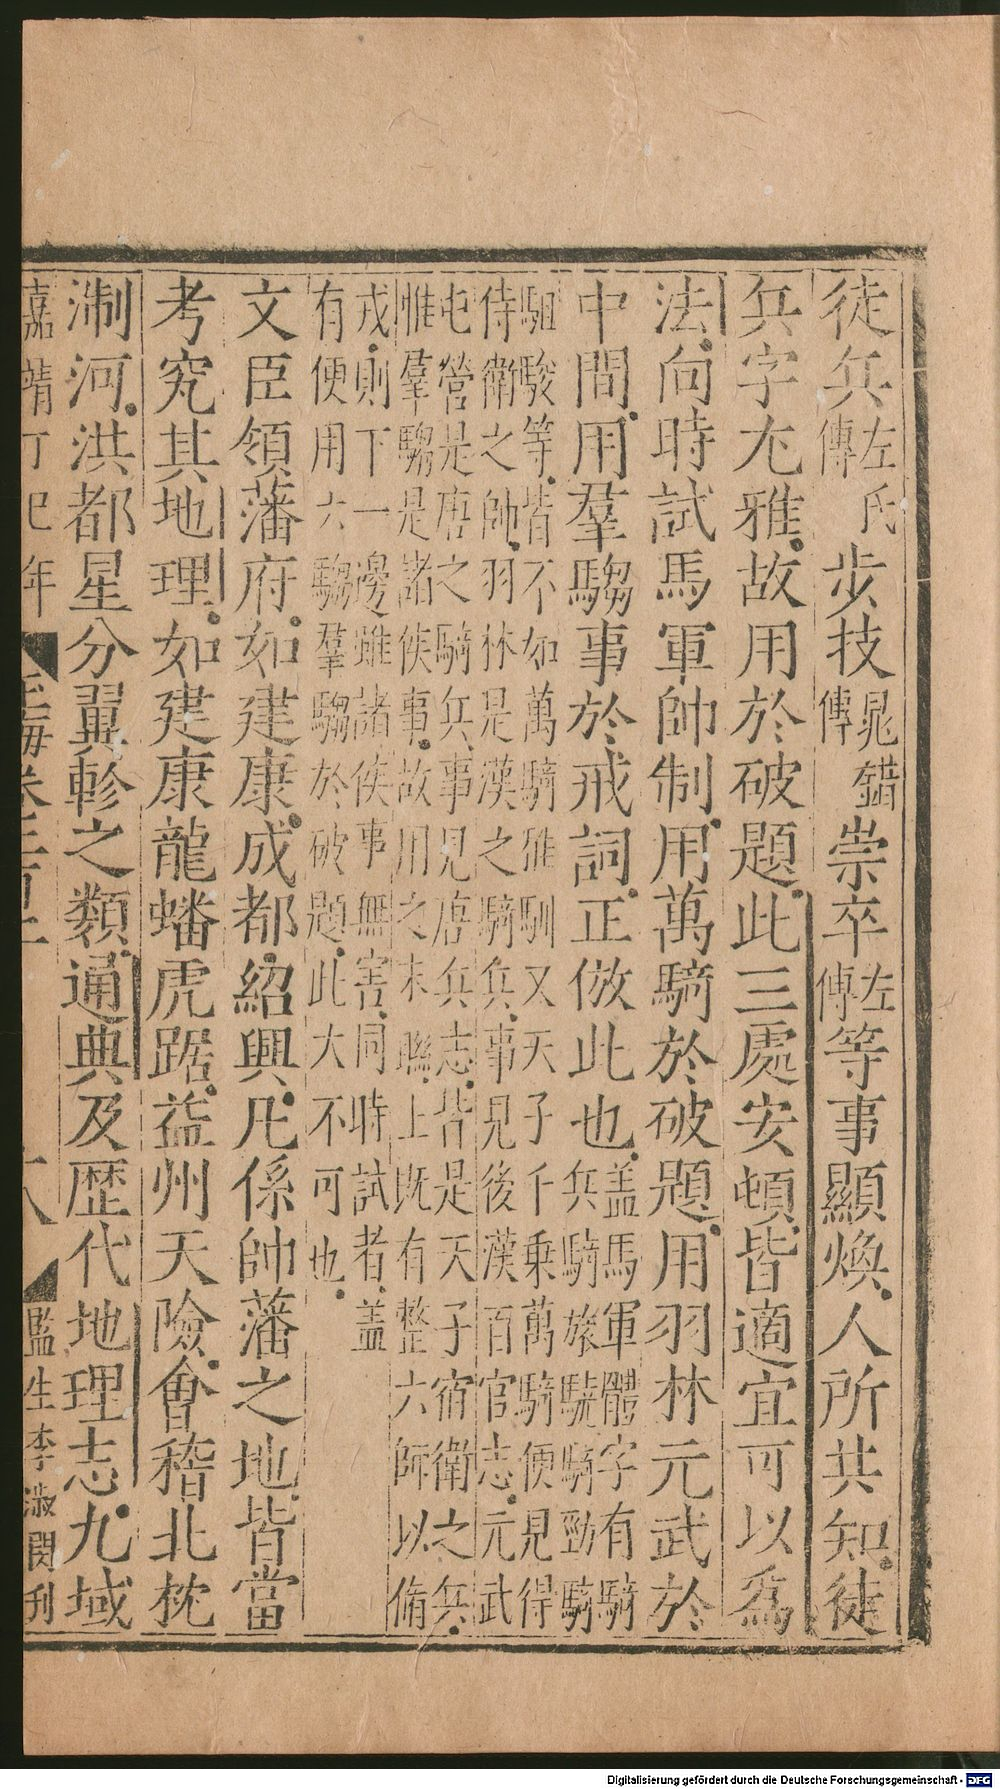 徒兵左氏傳步技晁錯傳崇卒左傳等事顯煥人所共知徒
兵字尢雅故用於破題此三處安頓皆適宜可以爲
法向時試馬軍帥制用萬騎於破題用羽林元武於
中間用羣騶事於戒詞正倣此也蓋馬軍體字有騎
兵騎旅驍騎勁騎
駔駿等皆不如萬騎雅馴又天子千乗萬騎便見得
侍衛之帥羽林是漢之騎兵事見後漢百官志元武
屯營是唐之騎兵事見唐兵志皆是天子宿衛之兵
惟羣騶是諸侯事故用之末聮上旣有整六師以脩
戎則下一邊雖諸侯事無害同時試者蓋
有便用六騶羣騶於破題此大不可也
文臣領藩府如建康成都紹興凡係帥藩之地皆當
考究其地理如建康龍蟠虎踞益州天險會稽北枕
淛河洪都星分翼軫之類通典及歷代地理志九域
嘉靖丁巳年
玉海卷二百二
十八
監生李淑閔刋
Digitalisierung gefördert durch die Deutsche Forschungsgemeinschaft - DFG